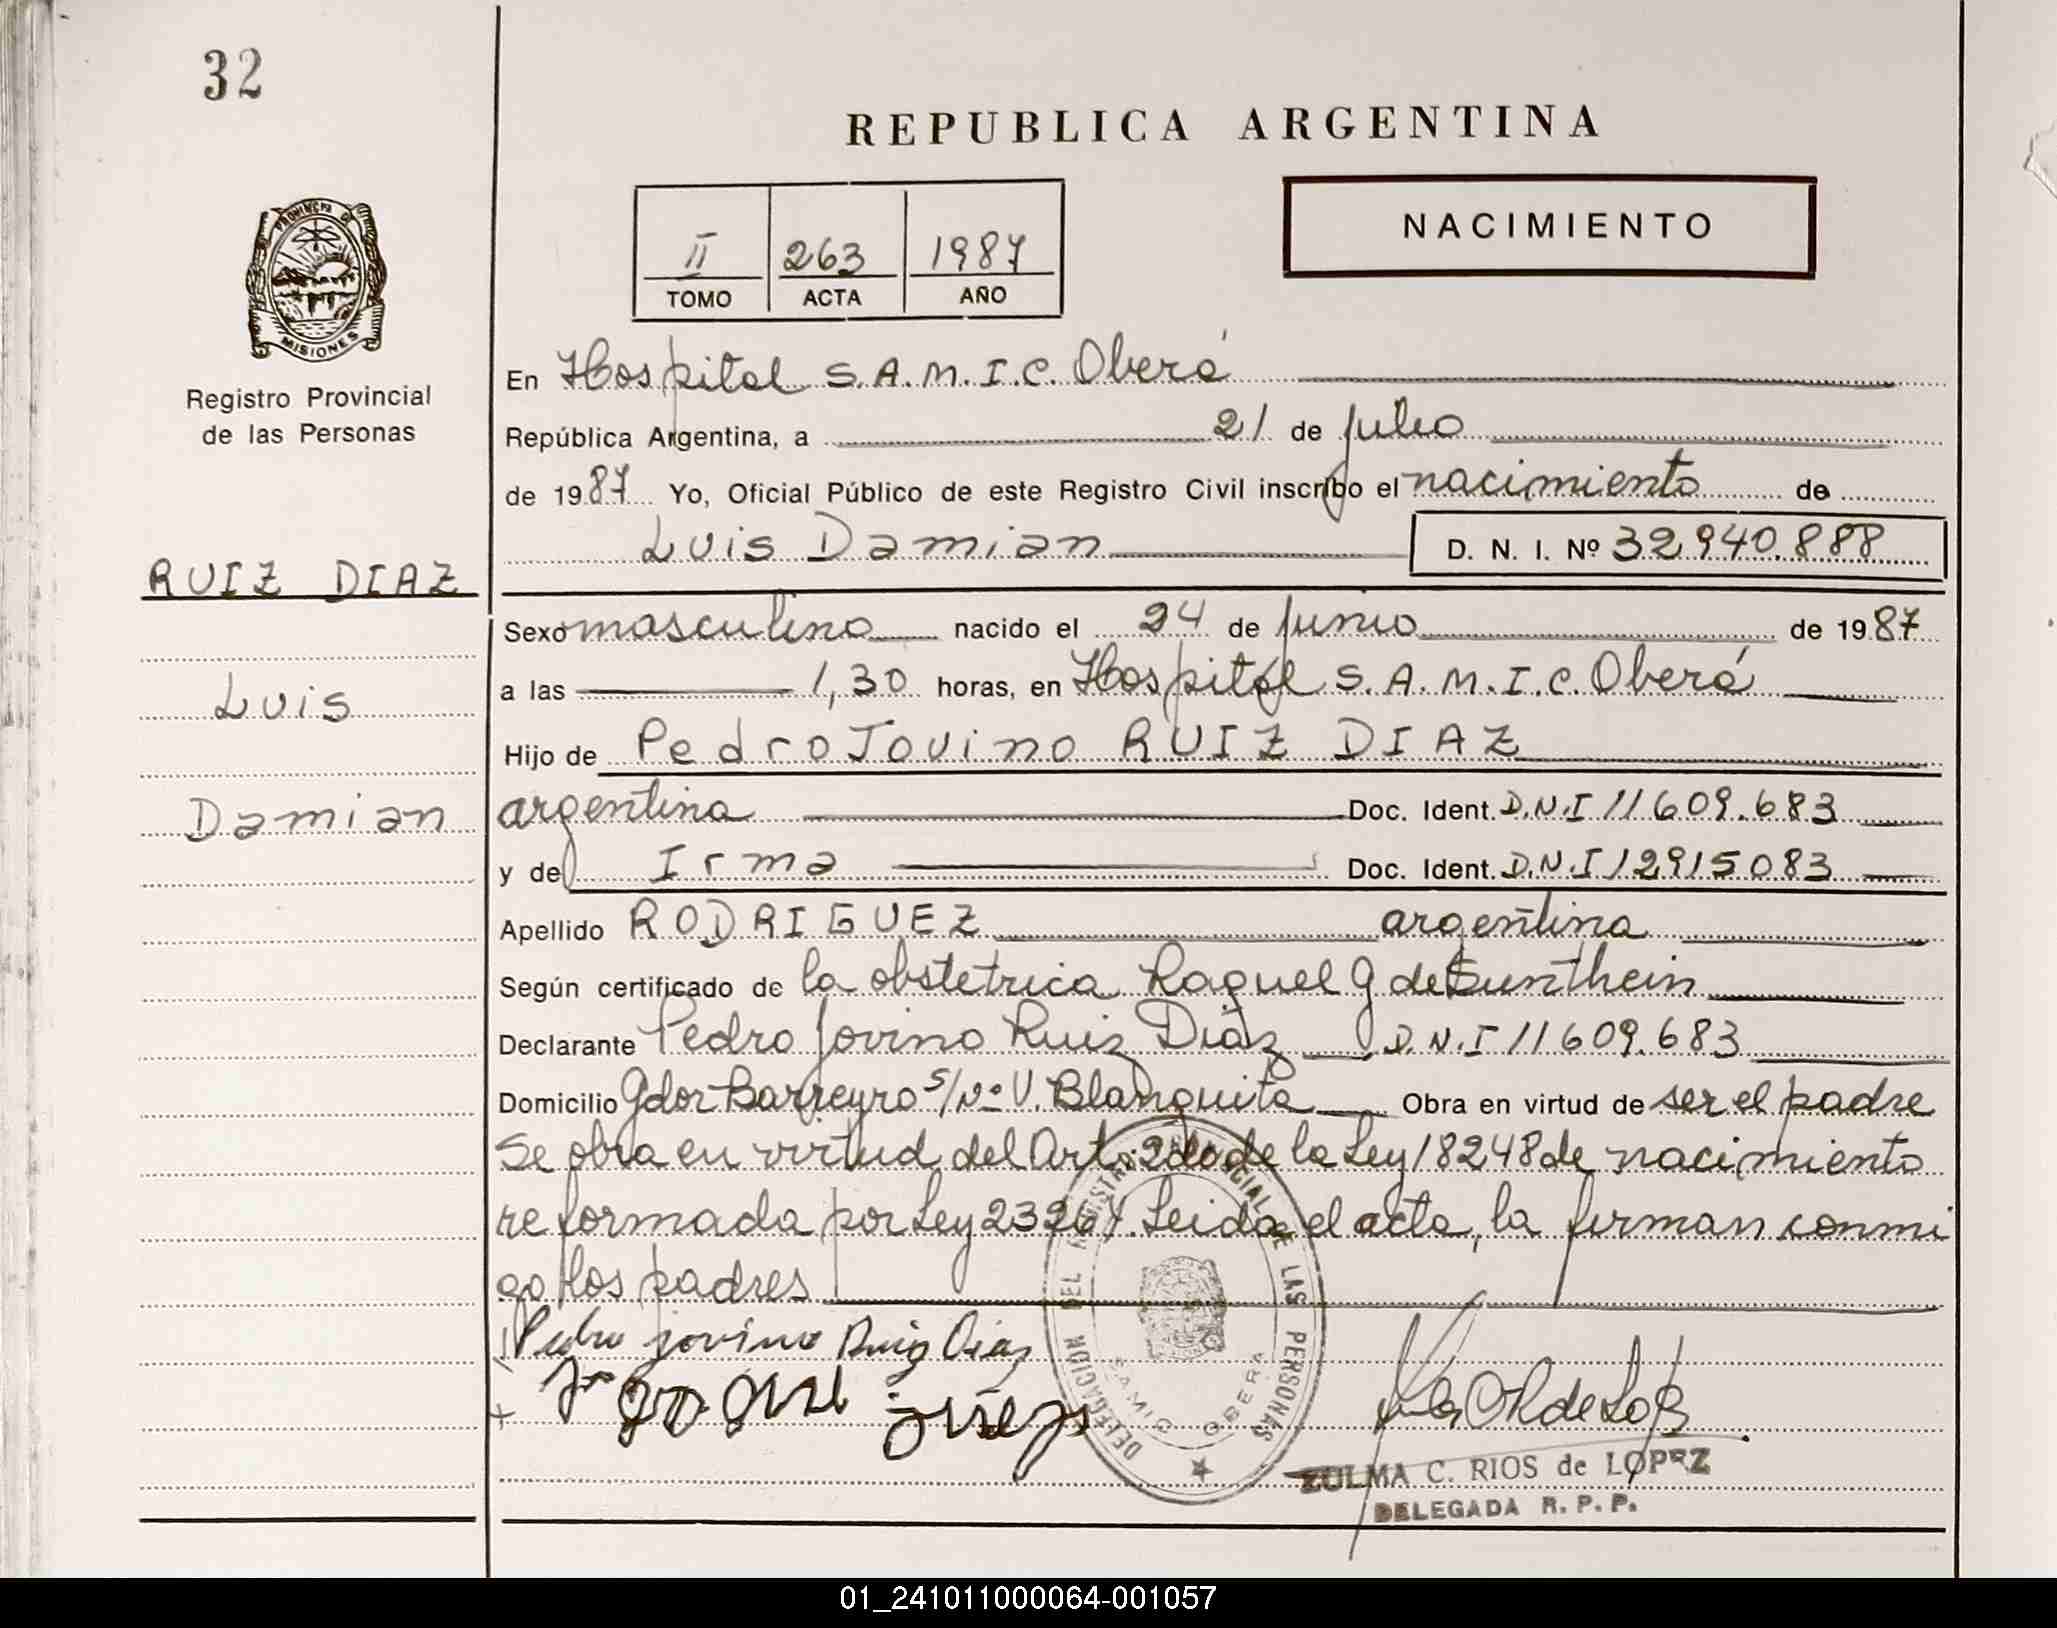 32
REPUBLICA ARGENTINA
NACIMIENTO
II 263 1987
TOMO ACTA AÑO
PROVINCIA DE
MISIONES
Registro Provincial
de las Personas
En Hospital S.A.M.I.C. Oberá
República Argentina, a 21 de julio
de 1987 Yo, Oficial Público de este Registro Civil inscribo el nacimiento de
Luis Damian D. N. I. Nº 32.940.888
RUIZ DIAZ
Luis
Damian
Sexo masculino nacido el 24 de junio de 1987
a las 1,30 horas, en Hospital S.A.M.I.C. Oberá
Hijo de Pedro Jovino RUIZ DIAZ
argentina Doc. Ident. D.N.I 11609.683
y de Irma Doc. Ident. D.N.I 12915083
Apellido RODRIGUEZ argentina
Según certificado de la obstetrica Raquel G de Sunthein
Declarante Pedro Jovino Ruiz Diaz D.N.I 11609.683
Domicilio Gdor Barreyro s/nº V. Blanquita Obra en virtud de ser el padre
Se obra en virtud del Art. 2do de la Ley 18248 de nacimiento
reformada por Ley 23264. Leida el acta, la firman conmi
go los padres
Pedro jovino Ruiz Diaz
DELEGACION DEL REGISTRO PROVINCIAL DE LAS PERSONAS
SAMIC OBERA
ZULMA C. RIOS de LOPEZ
DELEGADA R. P. P.
01_241011000064-001057